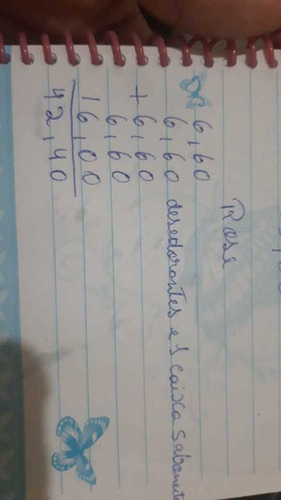 Rose
6,60
6,60 desedorantes e 1 caixa sabonete
+ 6,60
6,60
16,00
42,40